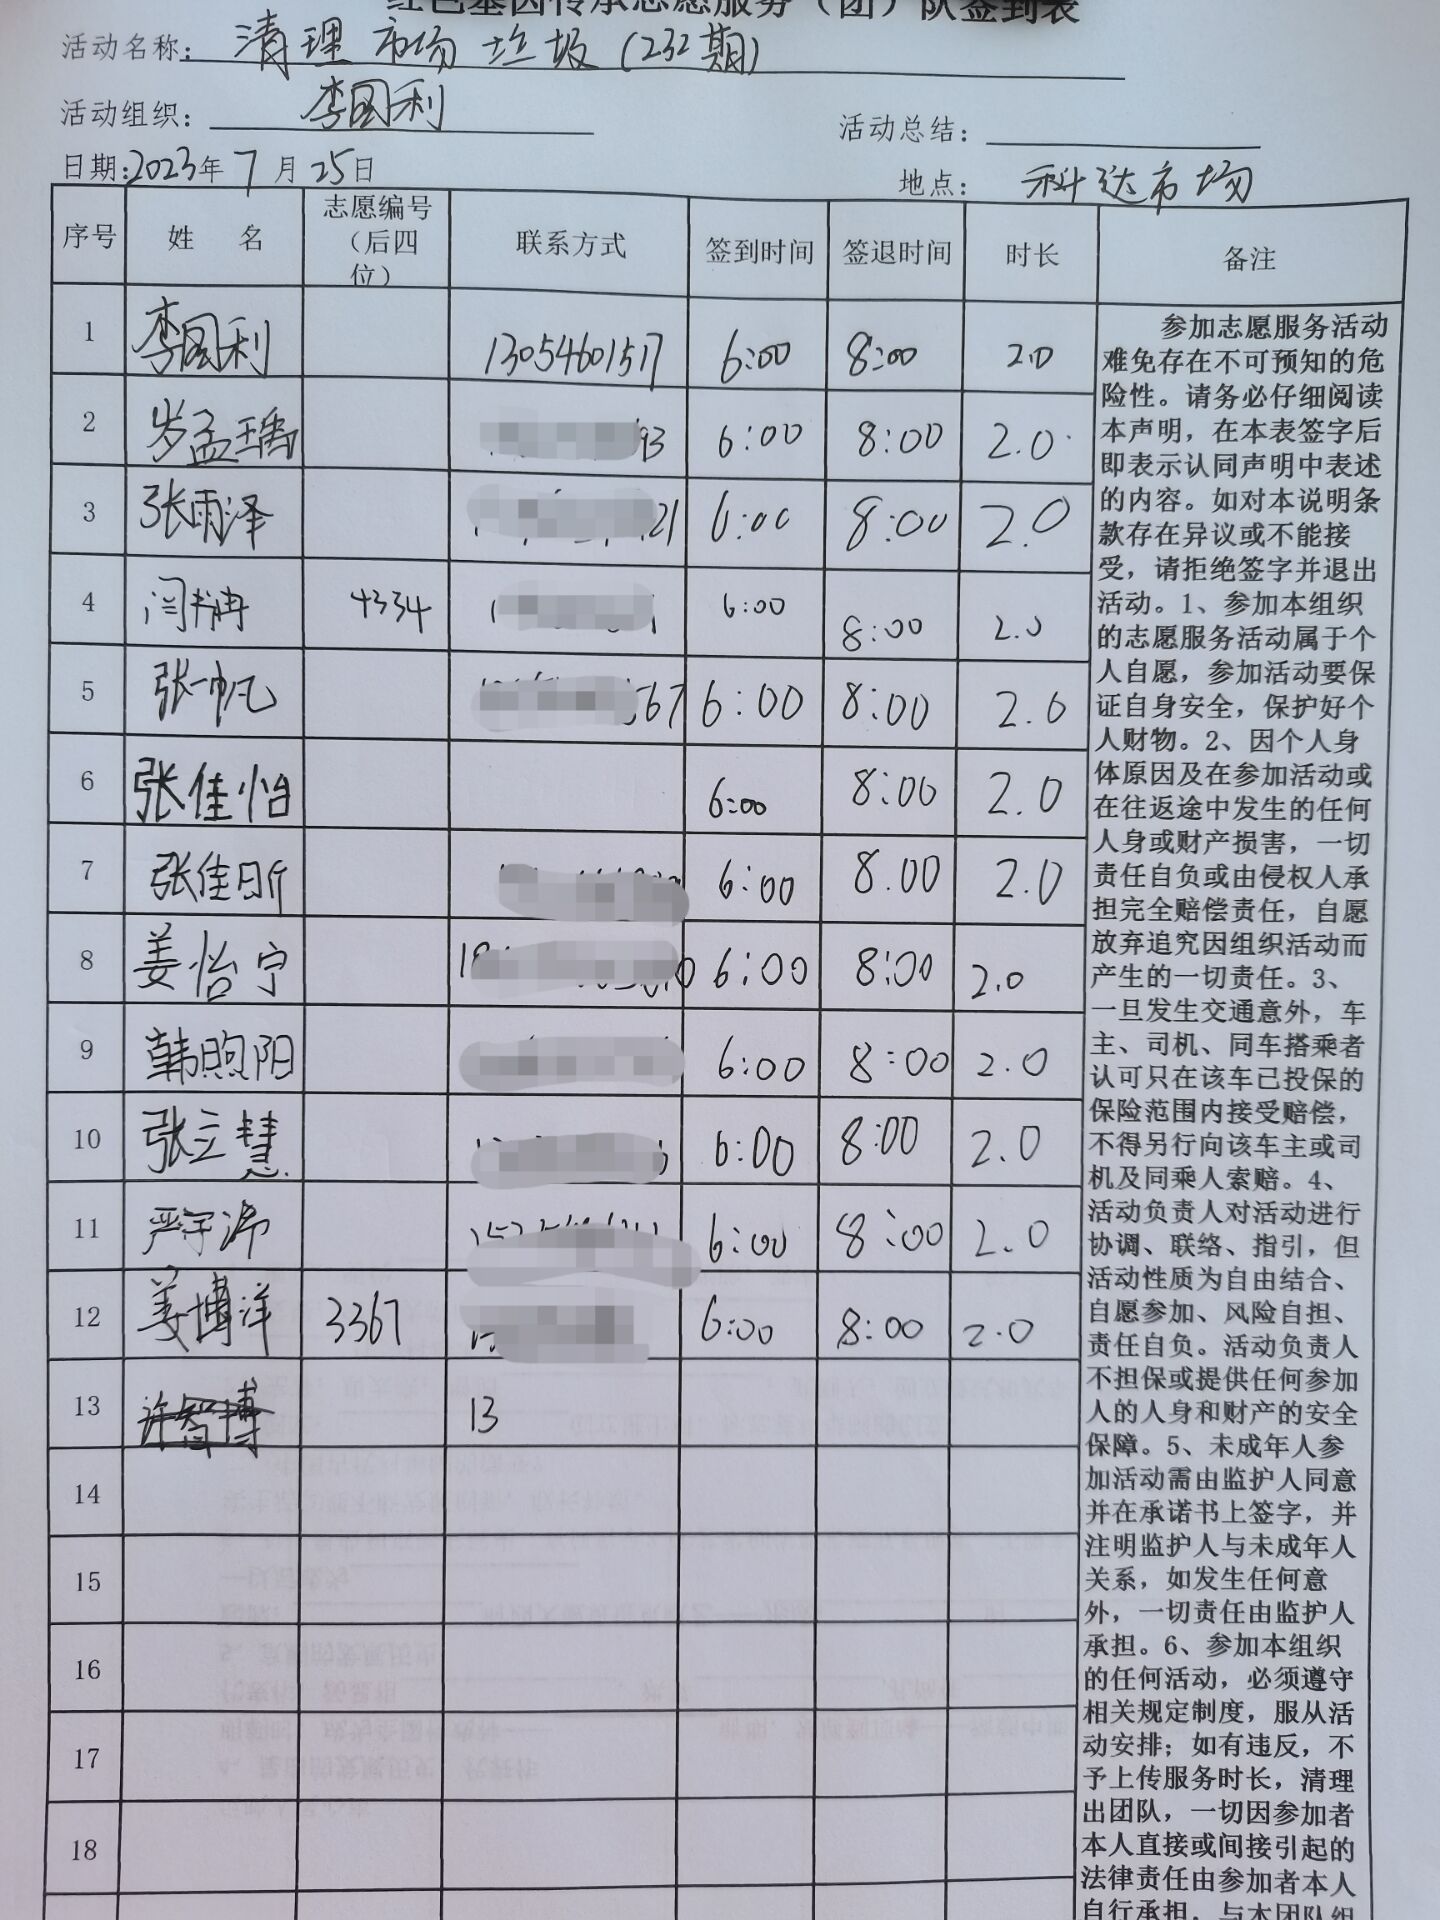 红色基因传承志愿服务（团）队签到表
活动名称：清理市场垃圾（232期）
活动组织：李国利
活动总结：
日期：2023年7月25日
地点：科达市场
序号 姓 名 志愿编号（后四位） 联系方式 签到时间 签退时间 时长 备注
1 李国利 13054601517 6:00 8:00 2.0
2 岁孟瑀 93 6:00 8:00 2.0
3 张雨泽 21 6:00 8:00 2.0
4 闫书冉 4334 6:00 8:00 2.0
5 张一帆 567 6:00 8:00 2.0
6 张佳怡 6:00 8:00 2.0
7 张佳昕 6:00 8.00 2.0
8 姜怡宁 6:00 8:00 2.0
9 韩煦阳 6:00 8:00 2.0
10 张立慧 6:00 8:00 2.0
11 严宇沛 6:00 8:00 2.0
12 姜博洋 3367 6:00 8:00 2.0
13 许智博 13
14
15
16
17
18
参加志愿服务活动
难免存在不可预知的危
险性。请务必仔细阅读
本声明，在本表签字后
即表示认同声明中表述
的内容。如对本说明条
款存在异议或不能接
受，请拒绝签字并退出
活动。1、参加本组织
的志愿服务活动属于个
人自愿，参加活动要保
证自身安全，保护好个
人财物。2、因个人身
体原因及在参加活动或
在往返途中发生的任何
人身或财产损害，一切
责任自负或由侵权人承
担完全赔偿责任，自愿
放弃追究因组织活动而
产生的一切责任。3、
一旦发生交通意外，车
主、司机、同车搭乘者
认可只在该车已投保的
保险范围内接受赔偿，
不得另行向该车主或司
机及同乘人索赔。4、
活动负责人对活动进行
协调、联络、指引，但
活动性质为自由结合、
自愿参加、风险自担、
责任自负。活动负责人
不担保或提供任何参加
人的人身和财产的安全
保障。5、未成年人参
加活动需由监护人同意
并在承诺书上签字，并
注明监护人与未成年人
关系，如发生任何意
外，一切责任由监护人
承担。6、参加本组织
的任何活动，必须遵守
相关规定制度，服从活
动安排；如有违反，不
予上传服务时长，清理
出团队，一切因参加者
本人直接或间接引起的
法律责任由参加者本人
自行承担，与本团队组